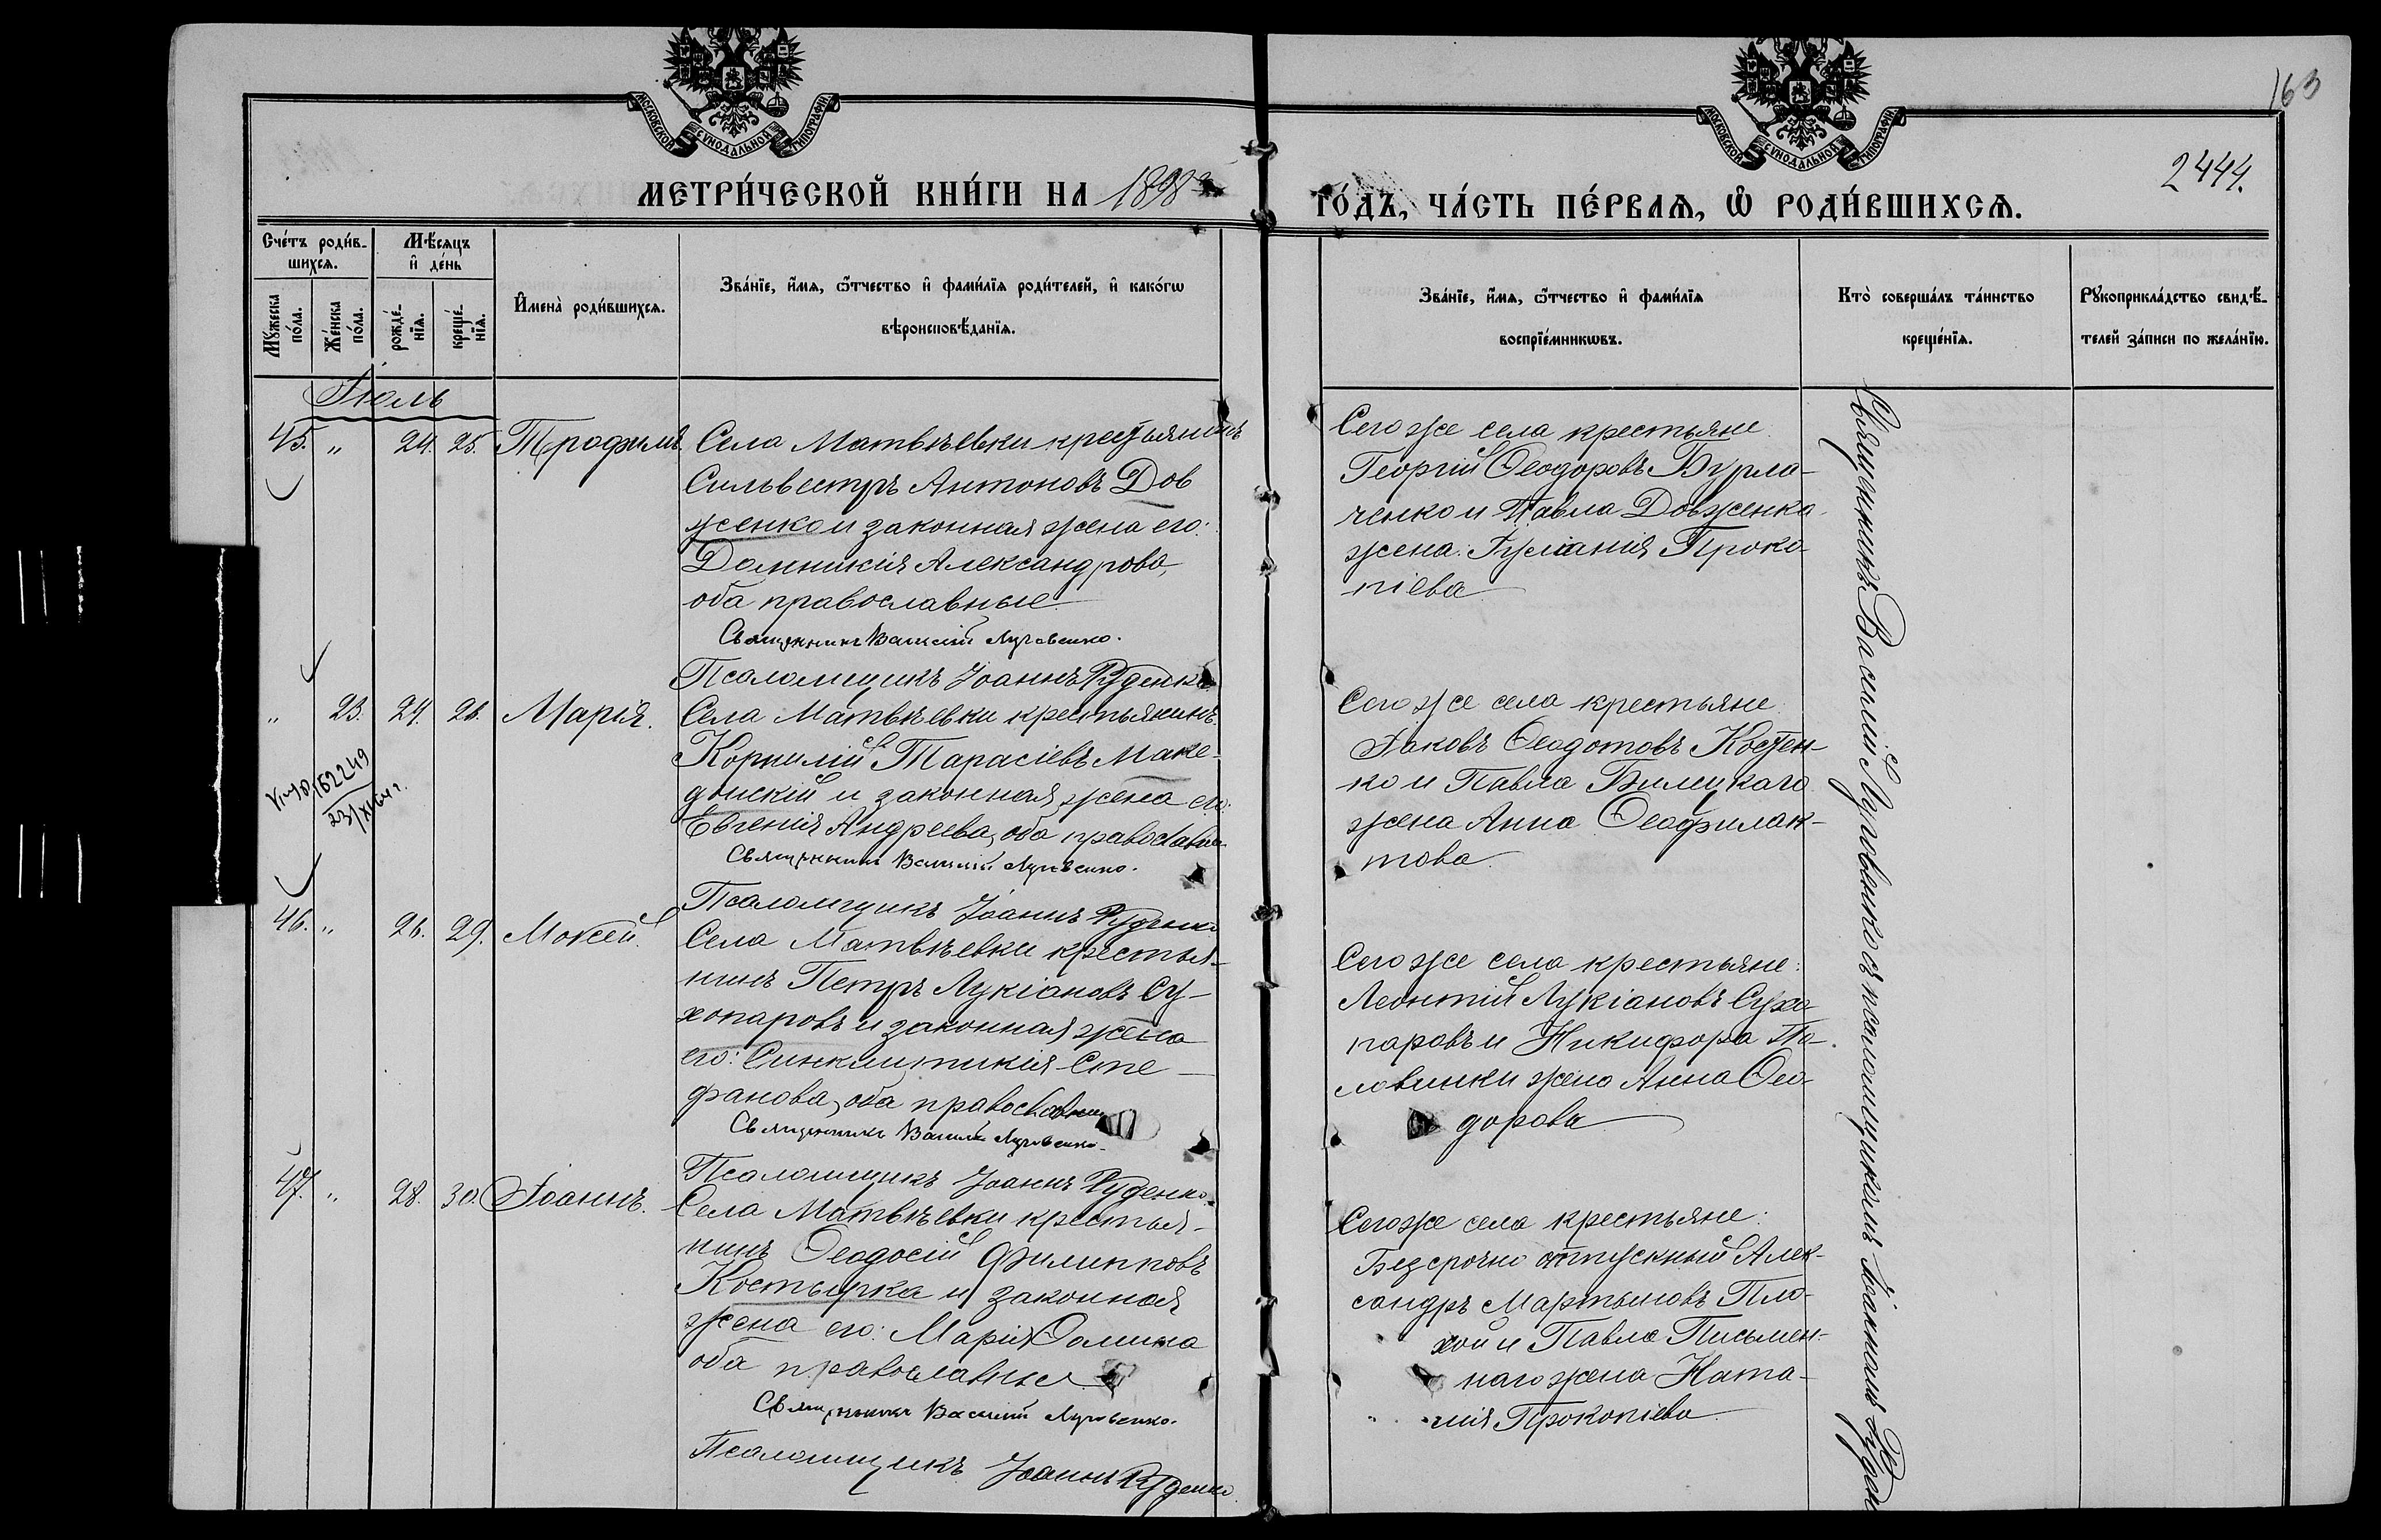 163
2444.
МОСКОВСКОЙ СѴНОДАЛЬНОЙ ТИПОГРАФІИ
МОСКОВСКОЙ СѴНОДАЛЬНОЙ ТИПОГРАФІИ
МЕТРИ́ЧЕСКОЙ КНИ́ГИ НА 1898
ГО́ДЪ, ЧА́СТЬ ПЕ́РВАѦ, Ѡ҆ РОДИ́ВШИХСѦ.
Сче́тъ роди́в-
шихсѧ.
Мꙋ́жеска по́ла.
Же́нска по́ла.
Мѣ́сѧцъ
и҆ де́нь
рожде́-
нїѧ.
креще́-
нїѧ.
И҆мена̀ роди́вшихсѧ.
Зва́нїе, и҆́мѧ, ѻ҆́тчество и҆ фами́лїѧ роди́телей, и҆ како́гѡ
вѣроисповѣ́данїѧ.
Зва́нїе, и҆́мѧ, ѻ҆́тчество и҆ фами́лїѧ
воспрїе́мникѡвъ.
Кто̀ соверша́лъ та́инство
креще́нїѧ.
Рꙋкоприкла́дство свидѣ́-
телей за́писи по жела́нїю.
Іюль
45. " 24. 25. Трофимъ.
Села Матвѣевки крестьянинъ
Сильвестръ Антоновъ Дов
женко и законная жена его:
Домникія Александрова,
оба православные
Священникъ Василій Луговенко.
Псаломщикъ Іоаннъ Руденко
Сего же села крестьяне
Георгій Ѳеодоровъ Бурла-
ченко и Павла Довженка
жена: Іуліанія Проко-
піева
" 23. 24. 26. Марія.
162249
23/XI 64 г.
Села Матвѣевки крестьянинъ
Корнилій Тарасіевъ Маке-
донскій и законная жена его:
Евгенія Андреева, оба православн.
Священникъ Василій Луговенко.
Псаломщикъ Іоаннъ Руденко
Сего же села крестьяне
Іаковъ Ѳеодотовъ Костен-
ко и Павла Билецкаго
жена Анна Ѳеофилак-
това.
46. " 26. 29. Моисей.
Села Матвѣевки крестья-
нинъ Петръ Лукіановъ Су-
хопаровъ и законная жена
его: Синклитикія Сте-
фанова, оба православны
Священникъ Василій Луговенко.
Псаломщикъ Іоаннъ Руденко.
Сего же села крестьяне:
Леонтій Лукіановъ Сухо
паровъ и Никифора По-
ловинки жена Анна Ѳео-
дорова
47. " 28. 30. Іоаннъ.
Села Матвѣевки крестья-
нинъ Ѳеодосій Филипповъ
Костырка и законная
жена его: Марія Ѳомина
оба православные
Священникъ Василій Луговенко.
Псаломщикъ Іоаннъ Руденко
Сего же села крестьяне:
Безсрочно отпускный Алек-
сандръ Мартыновъ Пло-
хой и Павла Письмен-
наго жена Ната-
лія Прокопіева
Священникъ Василій Луговенко съ псаломщикомъ Іоанномъ Руден